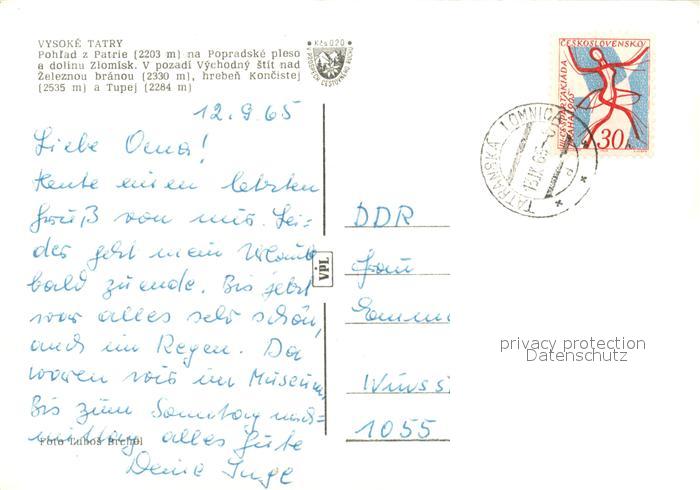 VYSOKÉ TATRY
Pohľad z Patrie (2203 m) na Popradské pleso
a dolinu Zlomísk. V pozadí Východný štít nad
Železnou bránou (2330 m), hrebeň Končistej
(2535 m) a Tupej (2284 m)
Kčs 0,20
12.9.65
Liebe Oma!
Heute einen letzten
Gruß von mir. Lei-
der geht mein Urlaub
bald zuende. Bis jetzt
war alles sehr schön,
auch im Regen. Da
waren wir im Museum.
Bis zum Sonntag nach=
mittag alles Gute
Deine Inge
Foto Ľuboš Brchel
VPL
ČESKOSLOVENSKO
PRAHA 1965
30
TATRANSKÁ LOMNICA
DDR
Frau
1055
privacy protection
Datenschutz